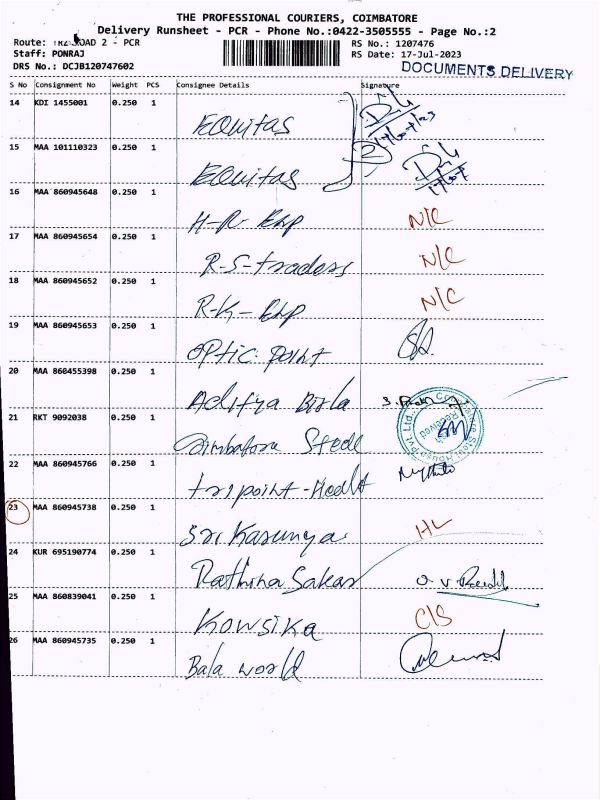 THE PROFESSIONAL COURIERS, COIMBATORE
Delivery Runsheet - PCR - Phone No.:0422-3505555 - Page No.:2
Route: ROAD 2 - PCR
RS No.: 1207476
Staff: PONRAJ
RS Date: 17-Jul-2023
DRS No.: DCJB120747602
DOCUMENTS DELIVERY
S No Consignment No Weight PCS Consignee Details Signature
14 KDI 1455001 0.250 1
Equitas
17/07/23
2
15 MAA 101110323 0.250 1
Equitas
17/07
16 MAA 860945648 0.250 1
H-R- Enp N/C
17 MAA 860945654 0.250 1
R-S-traders N/C
18 MAA 860945652 0.250 1
R-K- Enp N/C
19 MAA 860945653 0.250 1
Optic point
20 MAA 860455398 0.250 1
Aditya Birla
21 RKT 9092038 0.250 1
Coimbatore Steel
Coimbatore Steel House Pvt. Ltd.,
Received
22 MAA 860945766 0.250 1
tripoint-Healt
23 MAA 860945738 0.250 1
Sri Karunya HL
24 KUR 695190774 0.250 1
Rathina Sakar
25 MAA 860839041 0.250 1
Kowsika C/S
26 MAA 860945735 0.250 1
Bala world